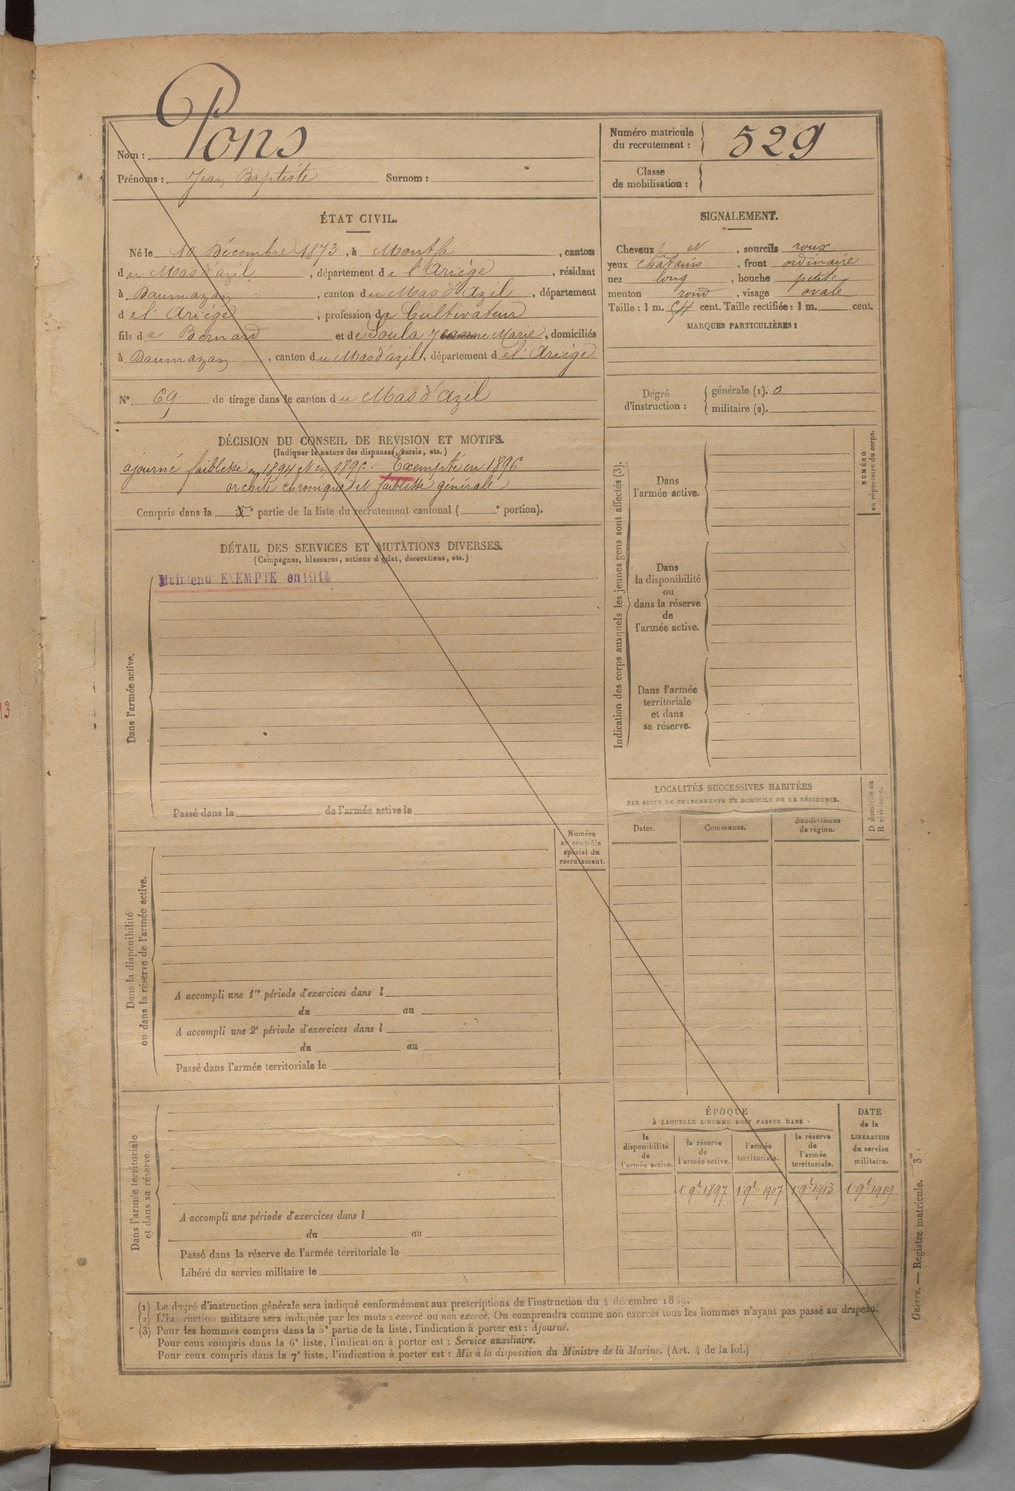 Nom : Pons
Prénoms : Jean Baptiste Surnom :
Numéro matricule du recrutement : 529
Classe de mobilisation :
ÉTAT CIVIL.
Né le 10 Décembre 1873, à Montfa, canton
du Mas d'azil, département de l'Ariége, résidant
à Daumazan, canton du Mas d'Azil, département
d e l'Ariége, profession de Cultivateur
fils de Bernard et de Soula Jeanne Marie, domiciliés
à Daumazan, canton du Mas d'azil, département de l'Ariége
N° 69 de tirage dans le canton du Mas d'azil
DÉCISION DU CONSEIL DE REVISION ET MOTIFS.
(Indiquer la nature des dispenses, sursis, etc.)
ajourné faiblesse en 1894 et en 1895. Exempté en 1896
orchite chronique et faiblesse générale
Compris dans la e partie de la liste du recrutement cantonal ( e portion).
DÉTAIL DES SERVICES ET MUTATIONS DIVERSES.
(Campagnes, blessures, actions d'éclat, décorations, etc.)
Maintenu EXEMPTÉ en 1914
Dans l'armée active.
Passé dans la de l'armée active le
Numéro
au contrôle
spécial du
recrutement.
Dans la disponibilité
ou dans la réserve de l'armée active.
A accompli une 1re période d'exercices dans l
du au
A accompli une 2e période d'exercices dans l
du au
Passé dans l'armée territoriale le
Dans l'armée territoriale
et dans sa réserve.
A accompli une période d'exercices dans l
du au
Passé dans la réserve de l'armée territoriale le
Libéré du service militaire le
SIGNALEMENT.
Cheveux et, sourcils roux
yeux châtains, front ordinaire
nez long, bouche petite
menton rond, visage ovale
Taille : 1 m. 54 cent. Taille rectifiée : 1 m. cent.
MARQUES PARTICULIÈRES :
Dégré
d'instruction :
générale (1). 0
militaire (2).
Indication des corps auxquels les jeunes gens sont affectés (3).
NUMÉRO
au répertoire du corps.
Dans
l'armée active.
Dans
la disponibilité
ou
dans la réserve
de
l'armée active.
Dans l'armée
territoriale
et dans
sa réserve.
LOCALITÉS SUCCESSIVES HABITÉES
PAR SUITE DE CHANGEMENTS DE DOMICILE OU DE RÉSIDENCE.
Dates. Communes. Subdivisions de région. D domicile ou R résidence.
ÉPOQUE
À LAQUELLE L'HOMME DOIT PASSER DANS :
DATE
de la
LIBÉRATION
du service
militaire.
la disponibilité de l'armée active.
la réserve de l'armée active.
l'armée territoriale.
la réserve de l'armée territoriale.
1 9bre 1897 1 9bre 1907 1 9bre 1913 1 9bre 1919
Guerre. — Registre matricule. 3
(1) Le degré d'instruction générale sera indiqué conformément aux prescriptions de l'instruction du 4 décembre 1889.
(2) L'instruction militaire sera indiquée par les mots : exercé ou non exercé. On comprendra comme non exercés tous les hommes n'ayant pas passé au drapeau.
(3) Pour les hommes compris dans la 5e partie de la liste, l'indication à porter est : Ajourné.
Pour ceux compris dans la 6e liste, l'indication à porter est : Service auxiliaire.
Pour ceux compris dans la 7e liste, l'indication à porter est : Mis à la disposition du Ministre de la Marine. (Art. 4 de la loi.)